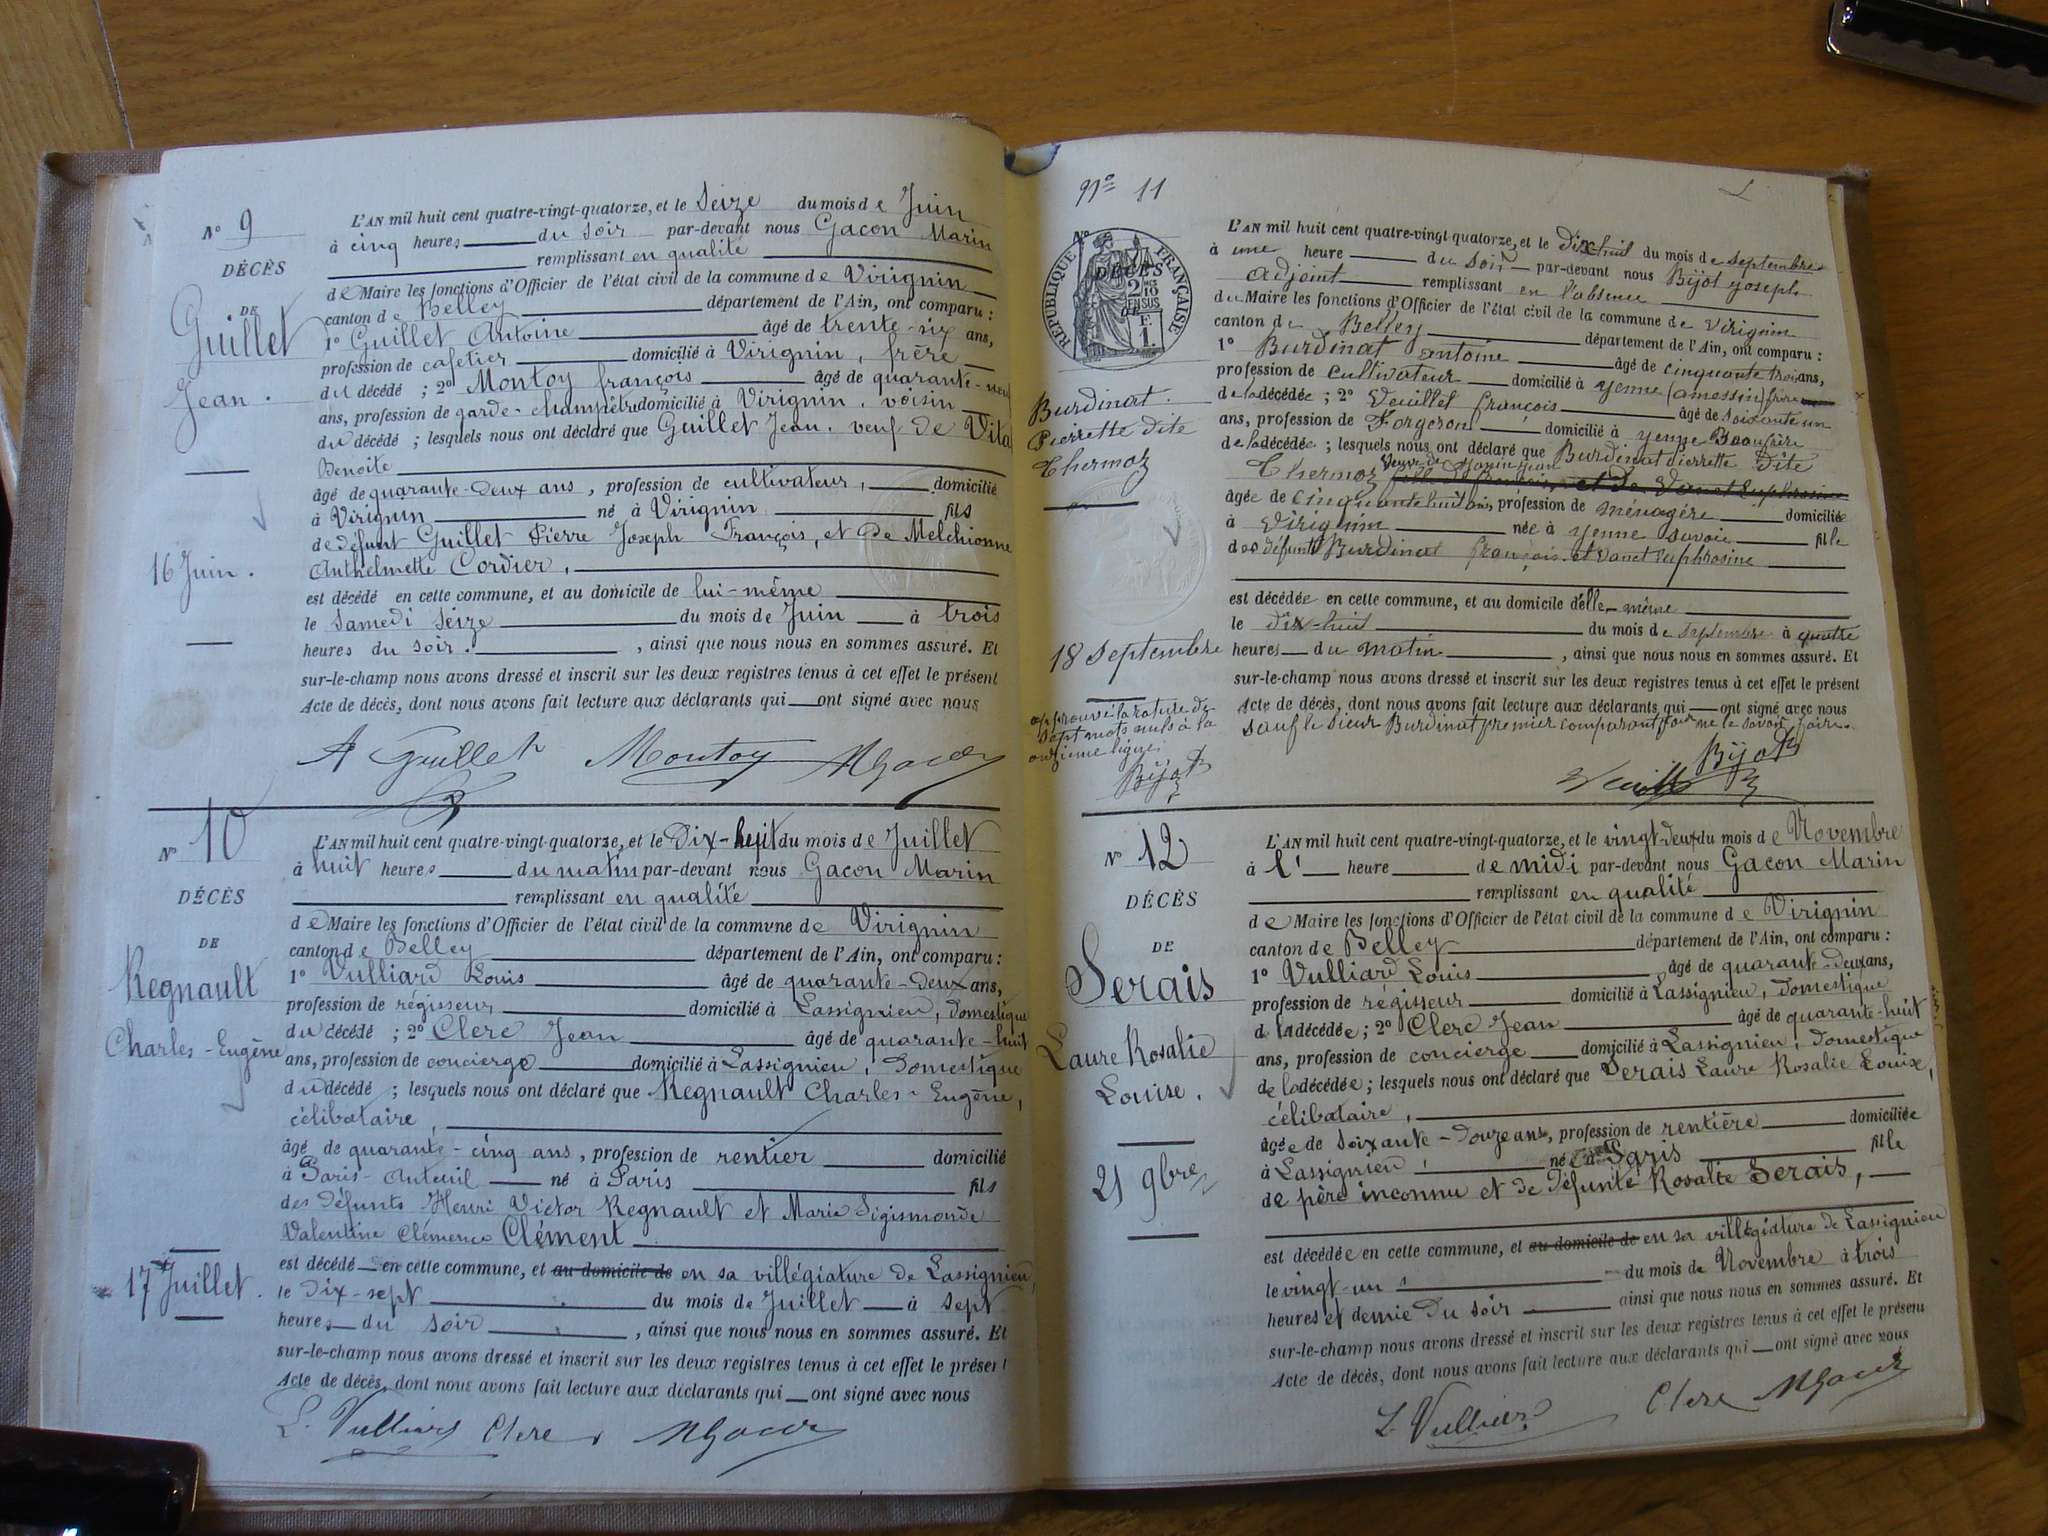 L'AN mil huit cent quatre-vingt-quatorze, et le Seize du mois de Juin
N° 9
à cinq heures du soir par-devant nous Gacon Marin
remplissant en qualité
DÉCÈS
de Maire les fonctions d'Officier de l'état civil de la commune de Virignin
DE
canton de Belley département de l'Ain, ont comparu :
Guillet
1° Guillet Antoine âgé de trente-six ans,
profession de cafetier domicilié à Virignin, frère
Jean.
du décédé ; 2° Montoy françois âgé de quarante-neuf
ans, profession de garde-champêtre domicilié à Virignin, voisin
du décédé ; lesquels nous ont déclaré que Guillet Jean, veuf de Vita
Benoîte
âgé de quarante-deux ans, profession de cultivateur, domicilié
à Virignin né à Virignin fils
de défunt Guillet Pierre Joseph François, et de Melchionne
16 Juin.
Anthelmette Cordier,
est décédé en cette commune, et au domicile de lui-même
le Samedi Seize du mois de Juin à trois
heures du soir. , ainsi que nous nous en sommes assuré. Et
sur-le-champ nous avons dressé et inscrit sur les deux registres tenus à cet effet le présent
Acte de décès, dont nous avons fait lecture aux déclarants qui ont signé avec nous
A Guillet Montoy MGacon
N° 10
L'AN mil huit cent quatre-vingt-quatorze, et le Dix-huit du mois de Juillet
à huit heures du matin par-devant nous Gacon Marin
DÉCÈS
remplissant en qualité
de Maire les fonctions d'Officier de l'état civil de la commune de Virignin
DE
canton de Belley département de l'Ain, ont comparu :
Regnault
1° Vulliard Louis âgé de quarante-deux ans,
profession de régisseur domicilié à Lassignieu, domestique
Charles-Eugène
du décédé ; 2° Clerc Jean âgé de quarante-huit
ans, profession de concierge domicilié à Lassignieu, Domestique
du décédé ; lesquels nous ont déclaré que Regnault Charles-Eugène,
célibataire,
âgé de quarante-cinq ans, profession de rentier domicilié
à Paris-Auteuil né à Paris fils
des défunts Henri Victor Regnault et Marie Sigismonde
Valentine Clémence Clément
est décédé en cette commune, et au domicile de en sa villégiature de Lassignieu,
17 Juillet.
le Dix-sept du mois de Juillet à sept
heures du soir , ainsi que nous nous en sommes assuré. Et
sur-le-champ nous avons dressé et inscrit sur les deux registres tenus à cet effet le présent
Acte de décès, dont nous avons fait lecture aux déclarants qui ont signé avec nous
L. Vulliard Clerc MGacon
N° 11
N°
RÉPUBLIQUE FRANÇAISE
DÉCÈS
2 10 EN SUS
DE
F. 1.
L'AN mil huit cent quatre-vingt-quatorze, et le dix-huit du mois de septembre
à une heure du soir par-devant nous Bijot joseph
adjoint remplissant en l'absence
du Maire les fonctions d'Officier de l'état civil de la commune de Virignin
canton de Belley département de l'Ain, ont comparu :
1° Burdinat antoine âgé de cinquante trois ans,
profession de cultivateur domicilié à yenne (amessin) frère
Burdinat.
de la décédée ; 2° Veuillet françois âgé de soixante un
Pierrette dite
ans, profession de Forgeron domicilié à yenne Beaufrère
Thermoz
de la décédée ; lesquels nous ont déclaré que Burdinat pierrette dite
Veuve de
Thermoz fille de françois et de Vanet Euphrosine
âgée de cinquante huit ans, profession de ménagère domiciliée
à Virignin née à yenne savoie fille
des défunts Burdinat françois et Vanet Euphrosine
est décédée en cette commune, et au domicile d'elle-même
le dix-huit du mois de septembre à quatre
18 septembre
heures du matin , ainsi que nous nous en sommes assuré. Et
sur-le-champ nous avons dressé et inscrit sur les deux registres tenus à cet effet le présent
Acte de décès, dont nous avons fait lecture aux déclarants qui ont signé avec nous
sauf le sieur Burdinat premier comparant pour ne le savoir faire.
approuvé la rature de
sept mots nuls à la
onzième ligne,
Bijot
Bijot
Veuillet
N° 12
L'AN mil huit cent quatre-vingt-quatorze, et le vingt deux du mois de Novembre
à l' heure de midi par-devant nous Gacon Marin
DÉCÈS
remplissant en qualité
de Maire les fonctions d'Officier de l'état civil de la commune de Virignin
DE
canton de Belley département de l'Ain, ont comparu :
Serais
1° Vulliard Louis âgé de quarante-deux ans,
profession de régisseur domicilié à Lassignieu, domestique
Laure Rosalie
de la décédée ; 2° Clerc Jean âgé de quarante-huit
ans, profession de concierge domicilié à Lassignieu, Domestique
Louise.
de la décédée ; lesquels nous ont déclaré que Serais Laure Rosalie Louise,
célibataire,
âgée de soixante-douze ans, profession de rentière domiciliée
à Lassignieu, née à Paris fille
21 9bre
de père inconnu et de défunte Rosalie Serais,
est décédée en cette commune, et au domicile de en sa villégiature de Lassignieu
le vingt-un du mois de Novembre à trois
heures et demie du soir ainsi que nous nous en sommes assuré. Et
sur-le-champ nous avons dressé et inscrit sur les deux registres tenus à cet effet le présent
Acte de décès, dont nous avons fait lecture aux déclarants qui ont signé avec nous
L. Vulliard Clerc MGacon